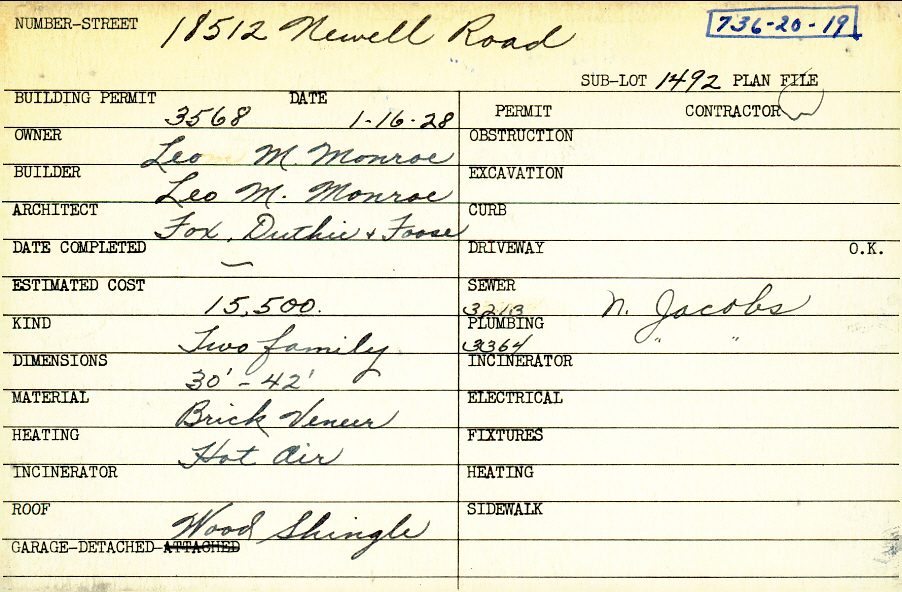 NUMBER-STREET 18512 Newell Road 736-20-19
SUB-LOT 1492 PLAN FILE
BUILDING PERMIT 3568 DATE 1-16-28
PERMIT CONTRACTOR
OWNER Leo M. Monroe
OBSTRUCTION
BUILDER Leo M. Monroe
EXCAVATION
ARCHITECT Fox, Duthie + Foose
CURB
DATE COMPLETED —
DRIVEWAY O.K.
ESTIMATED COST 15,500.
SEWER 3213 N. Jacobs
KIND Two family
PLUMBING 3364 " "
DIMENSIONS 30' - 42'
INCINERATOR
MATERIAL Brick Veneer
ELECTRICAL
HEATING Hot Air
FIXTURES
INCINERATOR
HEATING
ROOF Wood Shingle
SIDEWALK
GARAGE-DETACHED-ATTACHED